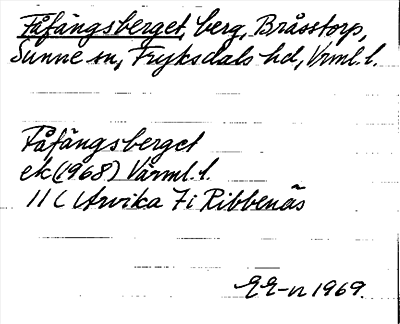 Fåfängsberget, berg, Bråsstorp,
Sunne sn, Fryksdals hd, Vrml. l.
Fåfängsberget
ek (1968) Värml. l.
11 C Arvika 7 i Ribbenäs
1969.